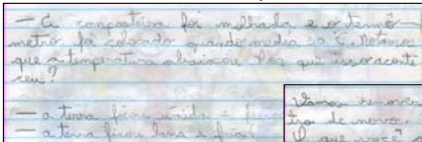 — A composteira foi molhada e o termô-
metro foi colocado quando media 20 °C. Notamos
que a temperatura abaixou. Por que isso aconte
ceu?
— a terra ficou úmida e
— a terra ficou lama e fria
Vamos remover
de novo.
O que você